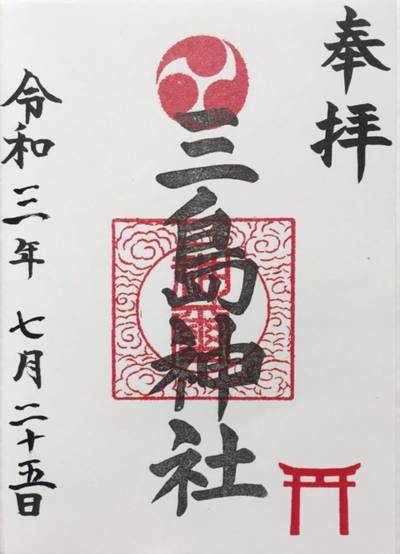 奉拝
三島神社
令和三年 七月二十五日